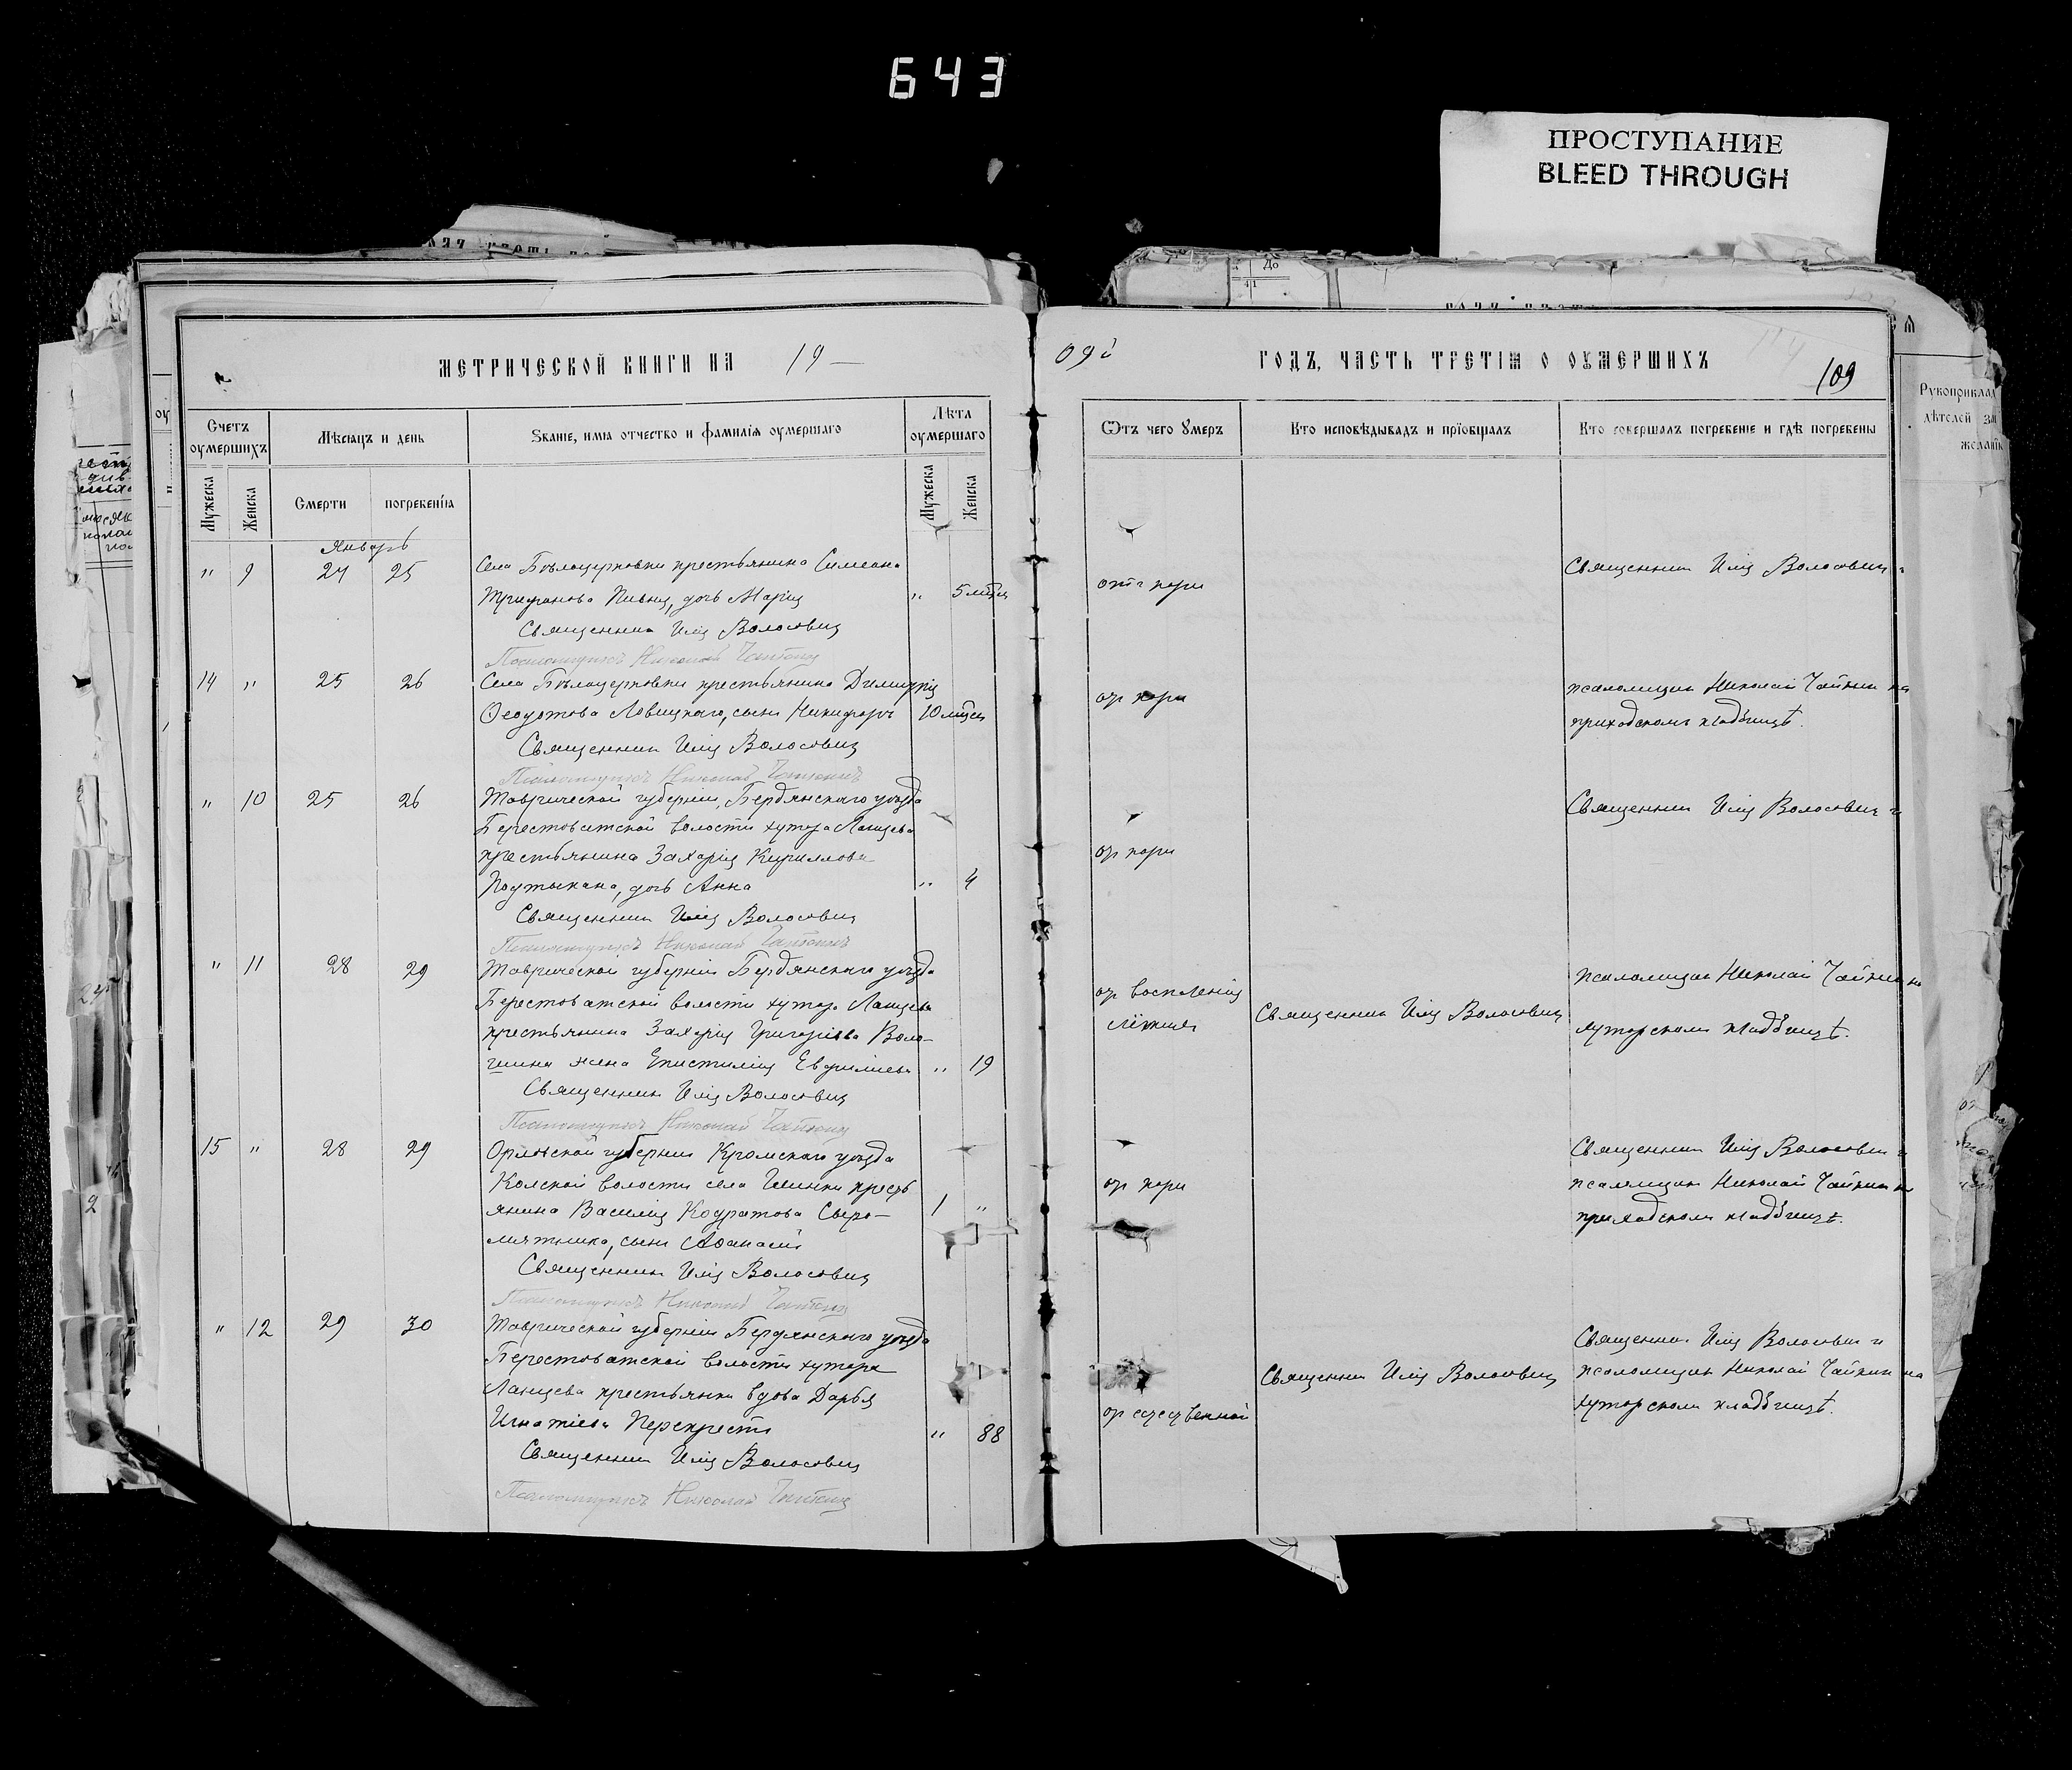 643
ПРОСТУПАНИЕ
BLEED THROUGH
До
41
МЕТРИЧЕСКОЙ КНИГИ НА 19 —
09 і ГОДЪ, ЧАСТЬ ТРЕТІѦ О ОУМЕРШИХЪ
109
Рукоприклад
дѣтелей
желанію
Счетъ оумершихъ
Мѣсѧцъ и день
Ѕваніе, имѧ отчество и фамиліѧ оумершаго
Лѣта оумершаго
Ѿтъ чего Умеръ
Кто исповѣдывалъ и прїобщалъ
Кто совершалъ погребеніе и гдѣ погребены
Мужеска
Женска
Смерти
погребенїѧ
Мужеска
Женска
Январь
" 9 24 25 Села Бѣлоцерковки крестьянина Симеона
Трифонова Пивня, дочь Марія " 5 мѣся
Священник Илія Волосович
Псаломщикъ Николай Чайкин
от кори
Священник Илія Волосович и
14 " 25 26 Села Бѣлоцерковки крестьянина Димитрія
Феодотова Ловицкаго, сын Никифоръ 10 мѣся
Священник Илія Волосович
Псаломщикъ Николай Чайкинъ
от кори
псаломщик Николай Чайкин на
приходском кладбищѣ.
" 10 25 26 Таврической губерніи, Бердянского уѣзда
Берестоватской волости хутора Ланцева
крестьянина Захарія Кириллова
Подтыкана, дочь Анна " 4
Священник Илія Волосович
Псаломщикъ Николай Чайкинъ
от кори
Священник Илія Волосович и
" 11 28 29 Таврической губерніи Бердянского уѣзда
Берестоватской волости хутора Ланцева
крестьянина Захарія Григоріева Воло-
шина жена Епистимія Евфиміева " 19
Священник Илія Волосович
Псаломщикъ Николай Чайкин
от воспаленія
лёгких
Священник Илія Волосович
псаломщик Николай Чайкин на
хуторском кладбищѣ.
15 " 28 29 Орловской губерніи Кромского уѣзда
Колской волости села Шинки кресть
янина Василія Кодратова Сыро-
мятника, сын Афанасій 1 "
Священник Илія Волосович
Псаломщикъ Николай Чайкин
от кори
Священник Илія Волосович и
псаломщик Николай Чайкин на
приходском кладбищѣ.
" 12 29 30 Таврической губерніи Бердянского уѣзда
Берестоватской волости хутора
Ланцева крестьянка вдова Дарья
Игнатіева Перекрест " 88
Священник Илія Волосович
Псаломщикъ Николай Чайкин
от естественной
Священник Илія Волосович
Священник Илія Волосович и
псаломщик Николай Чайкин на
хуторском кладбищѣ.